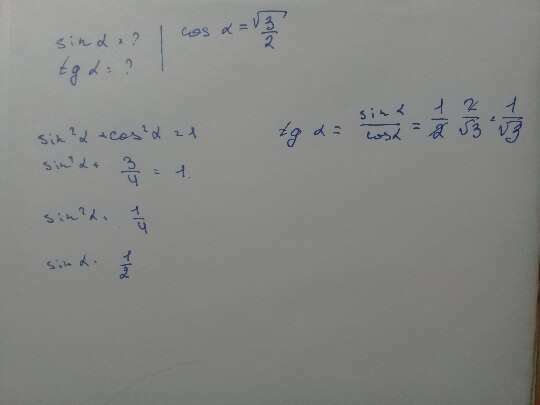 sin α = ? | cos α = √3/2
tg α = ?
sin²α + cos²α = 1
sin²α + 3/4 = 1
sin²α = 1/4
sin α = 1/2
tg α = sin α/cos α = 1/2 2/√3 = 1/√3